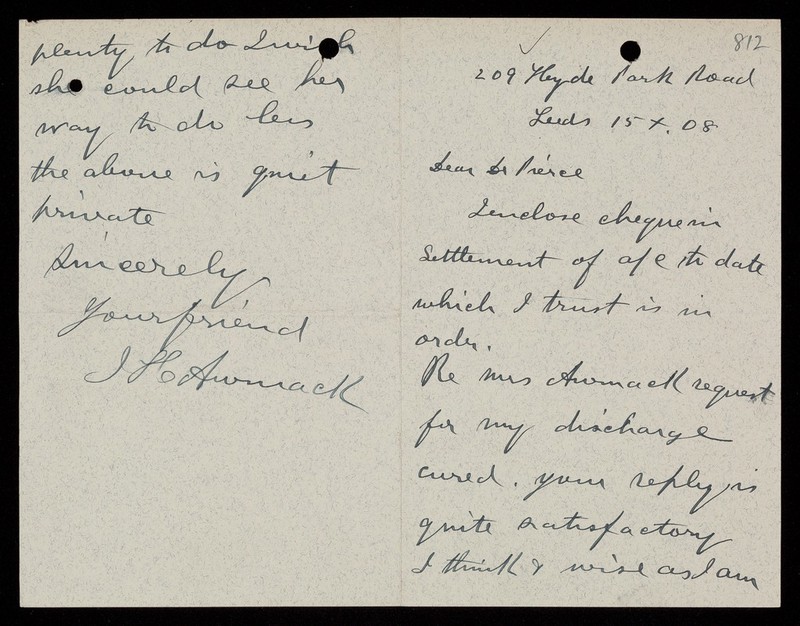 812
209 Hyde Park Road
Leeds 15 X. 08
Dear Dr Pierce
I enclose cheque in
Settlement of a/c to date
which I trust is in
order.
Re Mrs Awmack request
for my discharge
cured. your reply is
quite satisfactory
I think & wise as I am
plenty to do I wish
she could see her
way to do less
the above is quiet
private
Sincerely
Your friend
J H Awmack